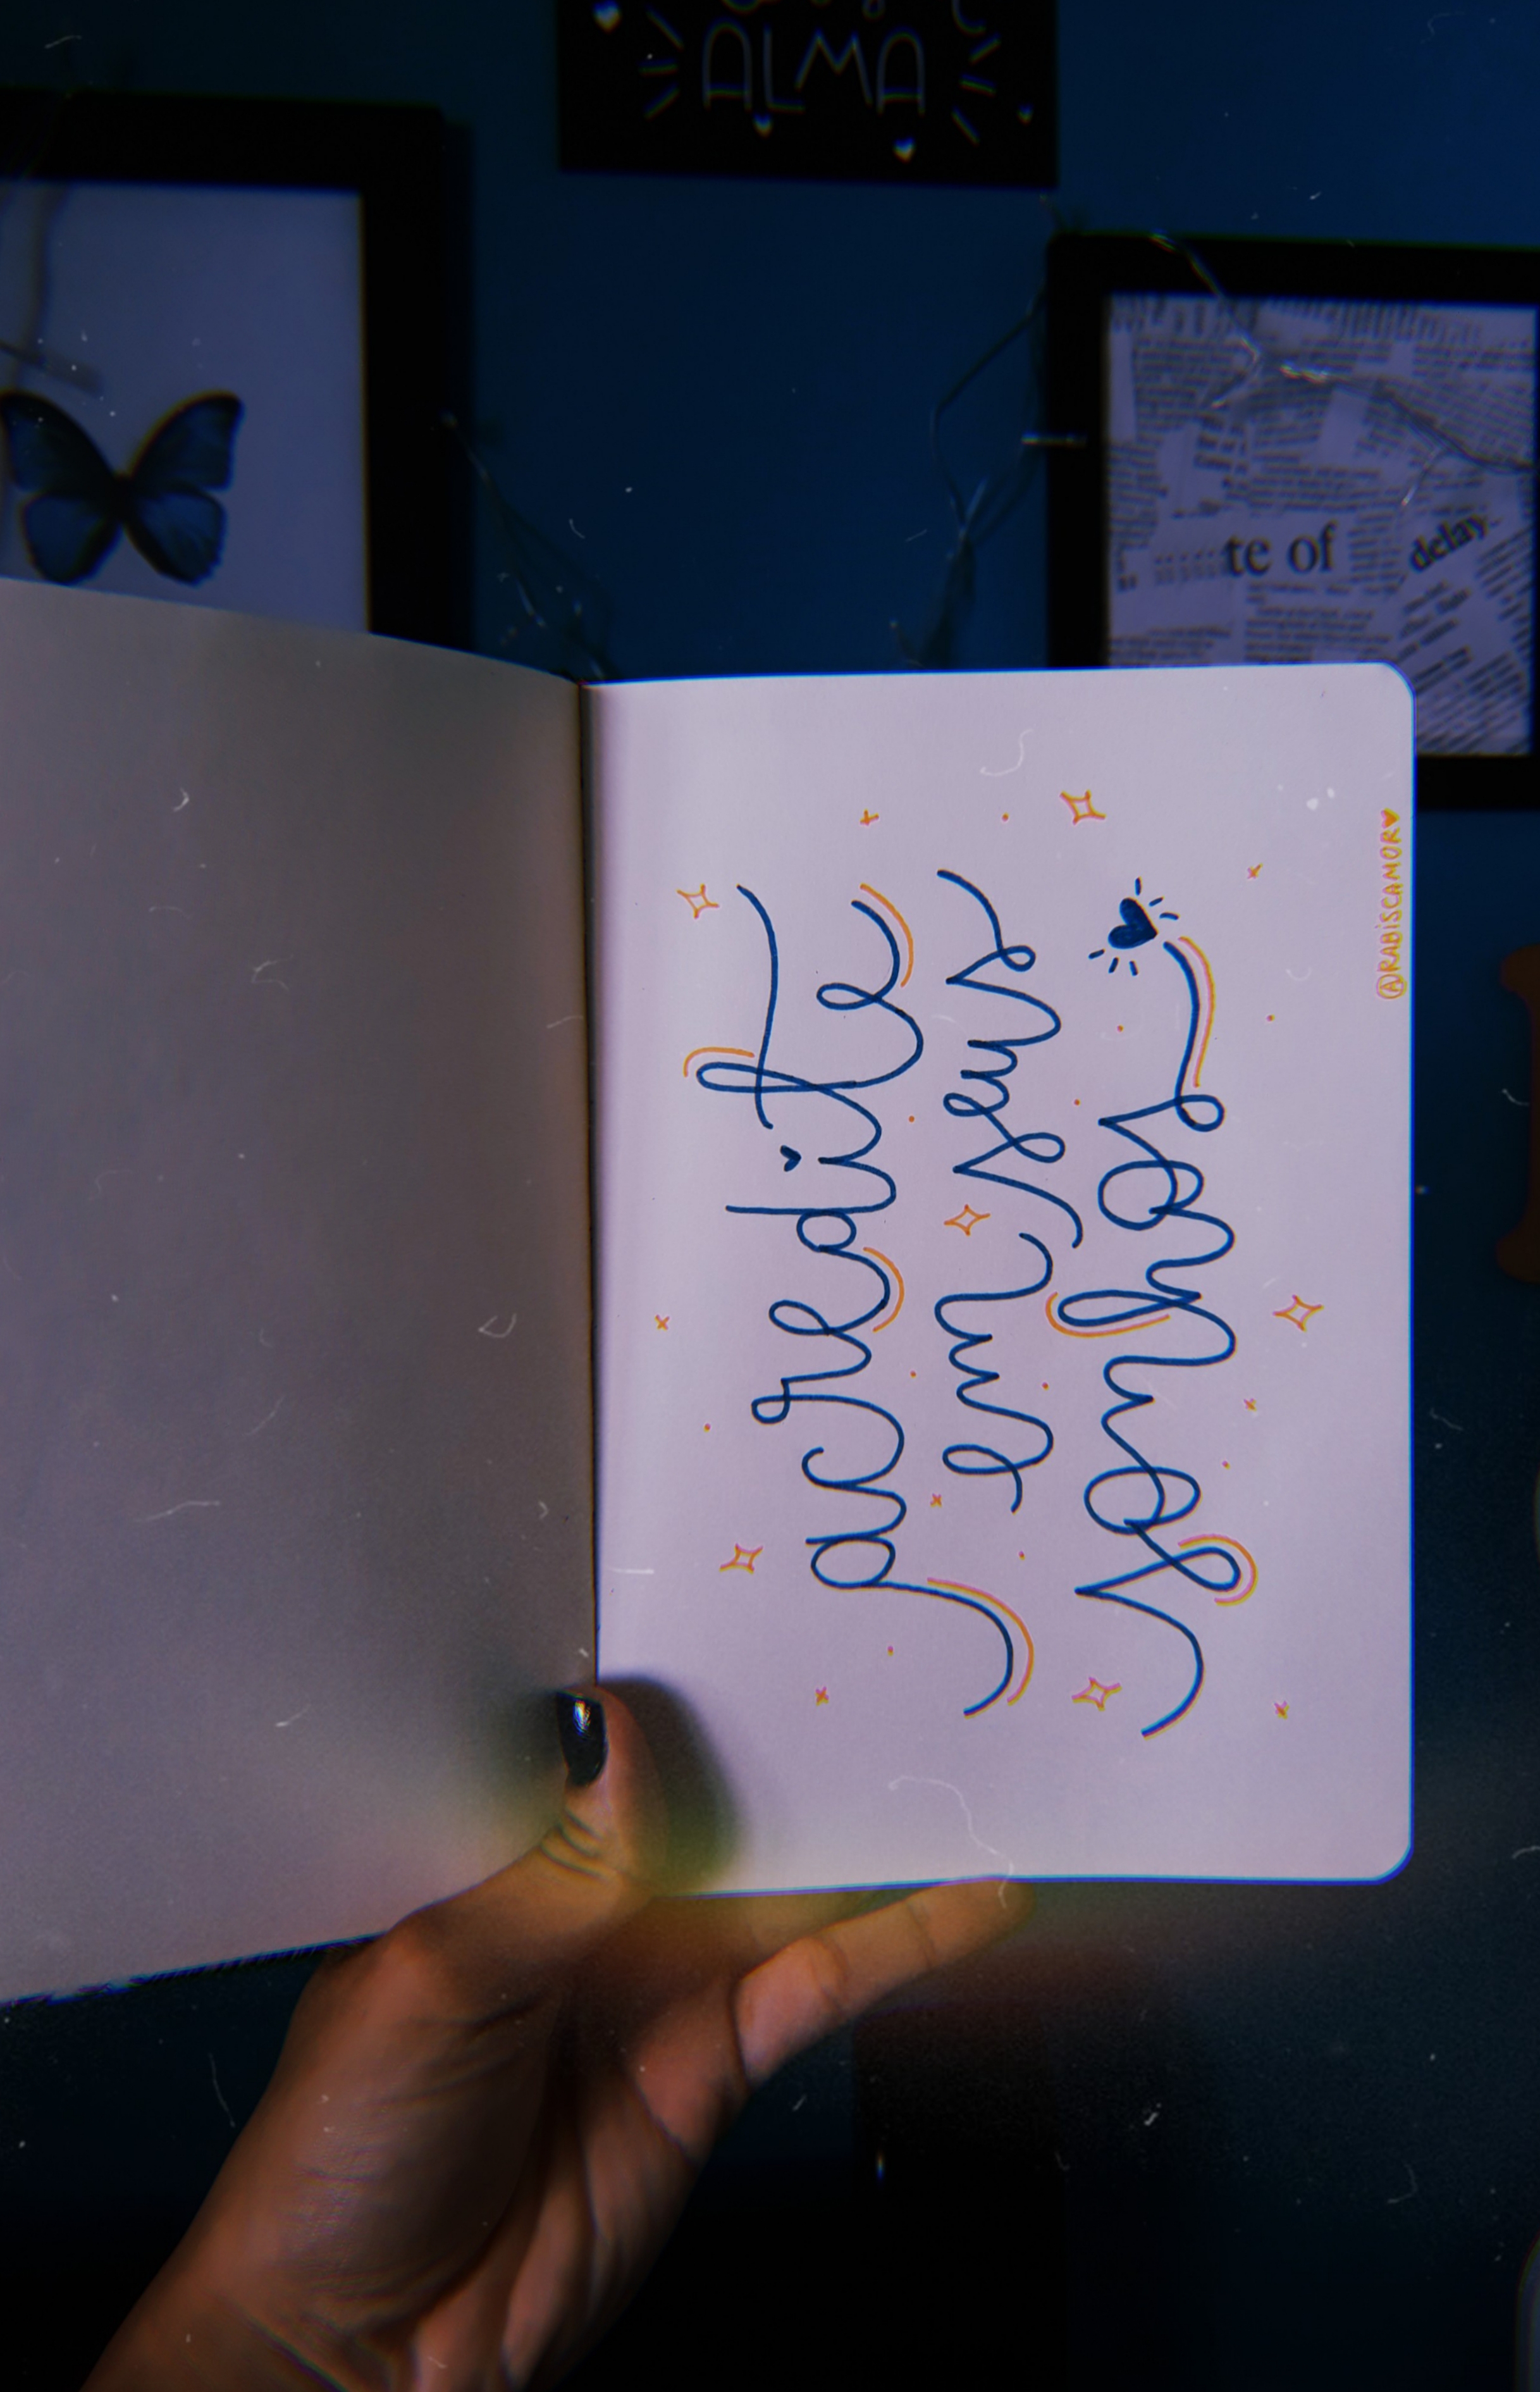 ALMA
te of
delay
acredite
em seus
sonhos
@RABISCAMOR♥